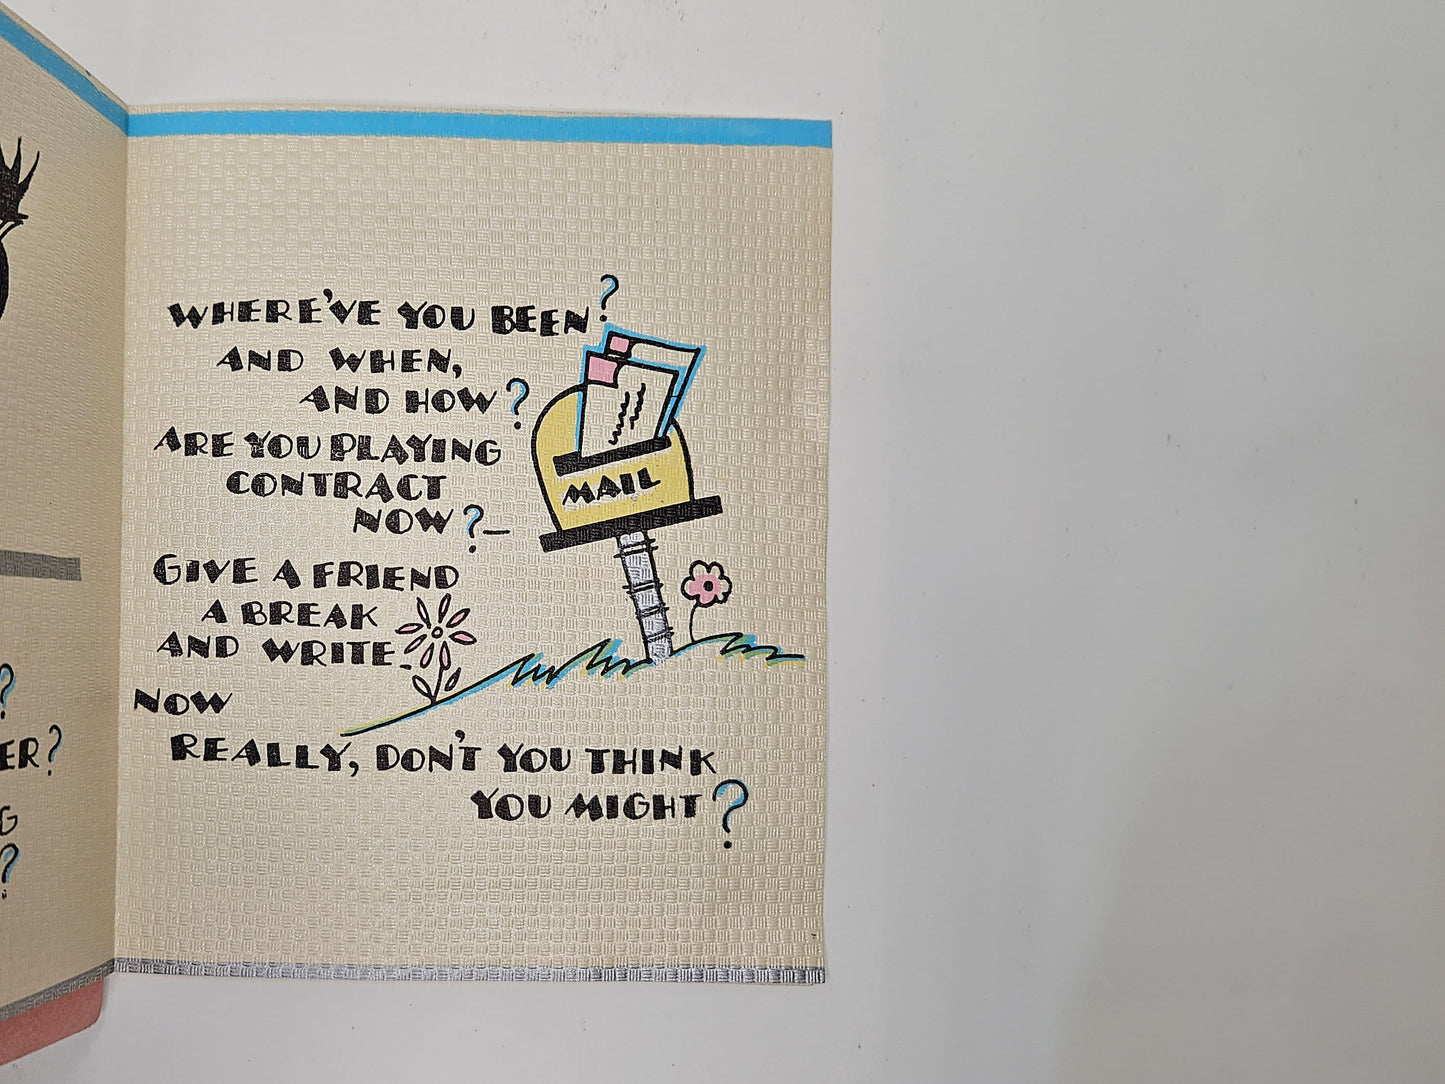 ?
ER?
G
?
WHERE'VE YOU BEEN?
AND WHEN,
AND HOW?
ARE YOU PLAYING
CONTRACT
NOW?—
GIVE A FRIEND
A BREAK
AND WRITE—
NOW
REALLY, DON'T YOU THINK
YOU MIGHT?
MAIL